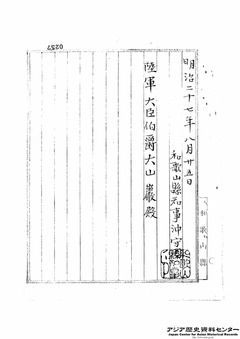 0257
明治二十七年八月廿五日
和歌山縣知事沖守固
陸軍大臣伯爵大山巖殿
和歌山縣
アジア歴史資料センター
Japan Center for Asian Historical Records